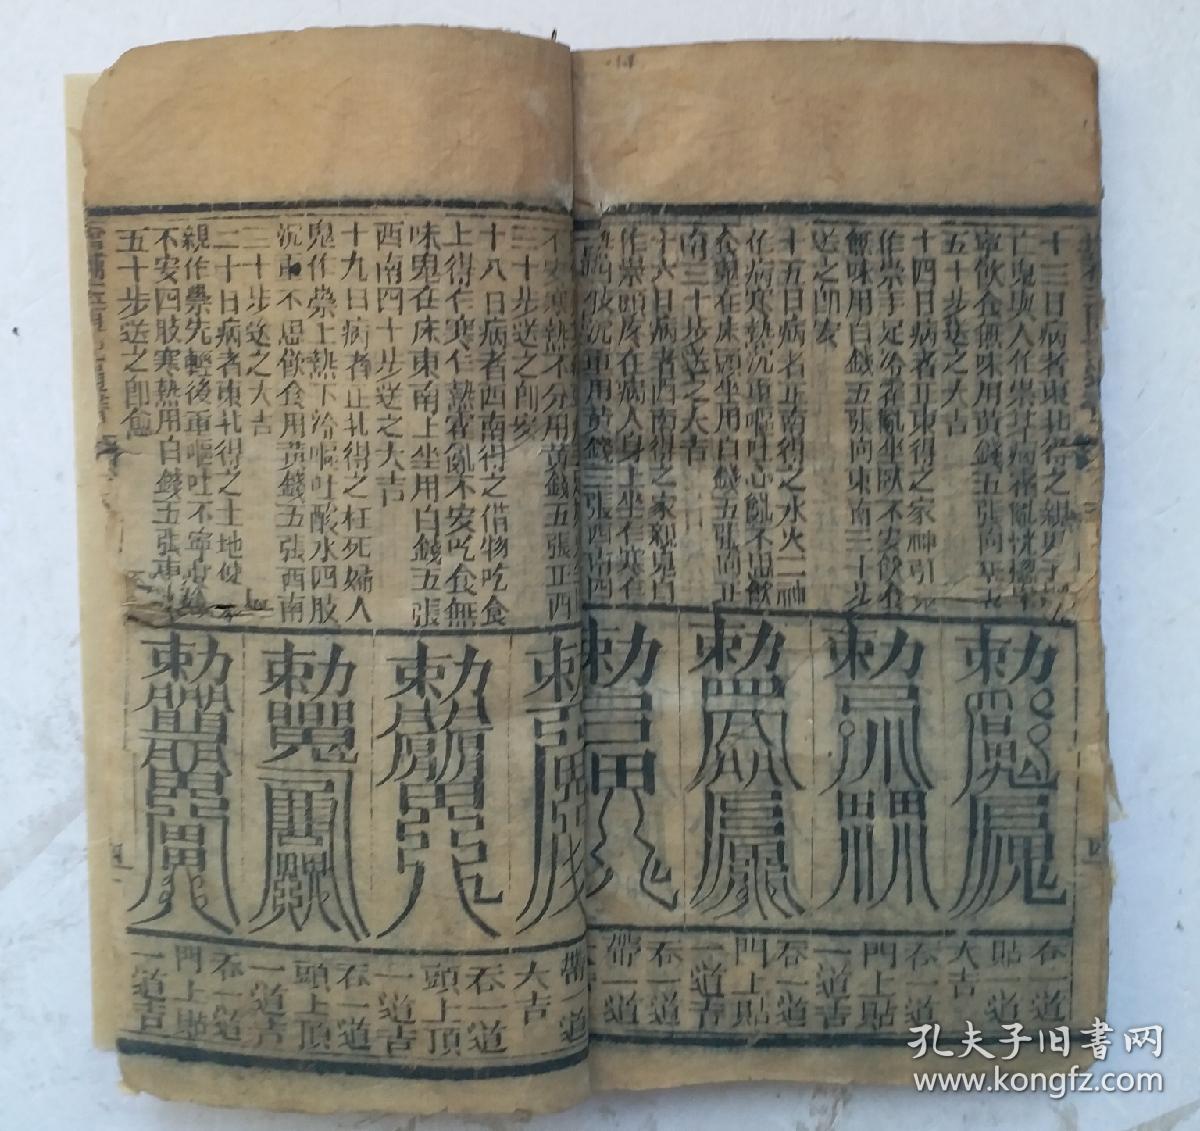 十三日病者東北得之親
亡鬼與人作祟其病
寧飲食無味用黃錢五張向
五十步送之大吉
十四日病者正東得之家神引
作祟手足冷 亂坐臥不安飲食
無味用白錢五張向東南三十步
送之即安
十五日病者正南得之水火二神
作病寒熱沉重嘔吐心亂不思飲
在床頭坐用白錢五張向正
南三十步送之大吉
十六日病者西南得之家親鬼
作祟頭疼在病人身上坐作寒作
四肢沉重用黃錢三張西南四
寒熱不分用黃錢五張正西
二十步送之即安
十八日病者西南得之借物吃食
上得作寒作熱霍亂不安吃食無
味鬼在床東南上坐用白錢五張
西南四十步送之大吉
十九日病者正北得之枉死婦人
鬼作祟上熱下冷嘔吐酸水四肢
沉重不思飲食用黃錢五張西南
三十步送之大吉
二十日病者東北得之土地使
親作 先輕後重嘔吐不寧
不安四肢寒熱用白錢五張東
五十步送之即愈
勅
勅
勅
勅
勅
勅
勅
勅
吞一道
貼
大吉
吞一道
門上貼
一道吉
吞一道
門上貼
一道吉
吞一道
帶一道
帶一道
大吉
吞一道
頭上頂
一道吉
吞一道
頭上頂
一道吉
吞一道
門上貼
一道吉
孔夫子旧书网
www.kongfz.com